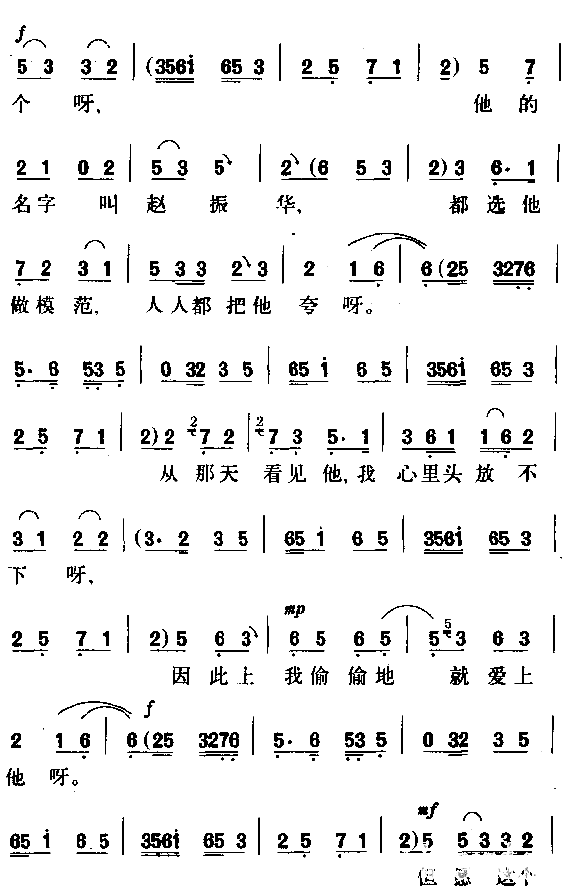 f
5 3 3 2 | (3561 65 3 | 2 5 7 1 | 2) 5 7 |
个 呀, 他 的
2 1 0 2 | 5 3 5 | 2 (6 5 3 | 2) 3 6· 1 |
名字 叫 赵 振 华, 都 选 他
7 2 3 1 | 5 3 3 2 3 | 2 1 6 | 6 (25 3276 |
做 模 范, 人 人 都 把 他 夸 呀。
5· 6 53 5 | 0 32 3 5 | 65 1 6 5 | 3561 65 3 |
2 5 7 1 | 2) 2 2 7 2 | 2 7 3 5· 1 | 3 6 1 1 6 2 |
从 那 天 看 见 他, 我 心 里 头 放 不
3 1 2 2 | (3· 2 3 5 | 65 1 6 5 | 3561 65 3 |
下 呀,
mp
2 5 7 1 | 2) 5 6 3 | 6 5 6 5 | 5 5 3 6 3 |
因 此 上 我 偷 偷 地 就 爱 上
f
2 1 6 | 6 (25 3276 | 5· 6 53 5 | 0 32 3 5 |
他 呀。
mf
65 1 6 5 | 3561 65 3 | 2 5 7 1 | 2) 5 5 3 3 2 |
但 愿 这 个